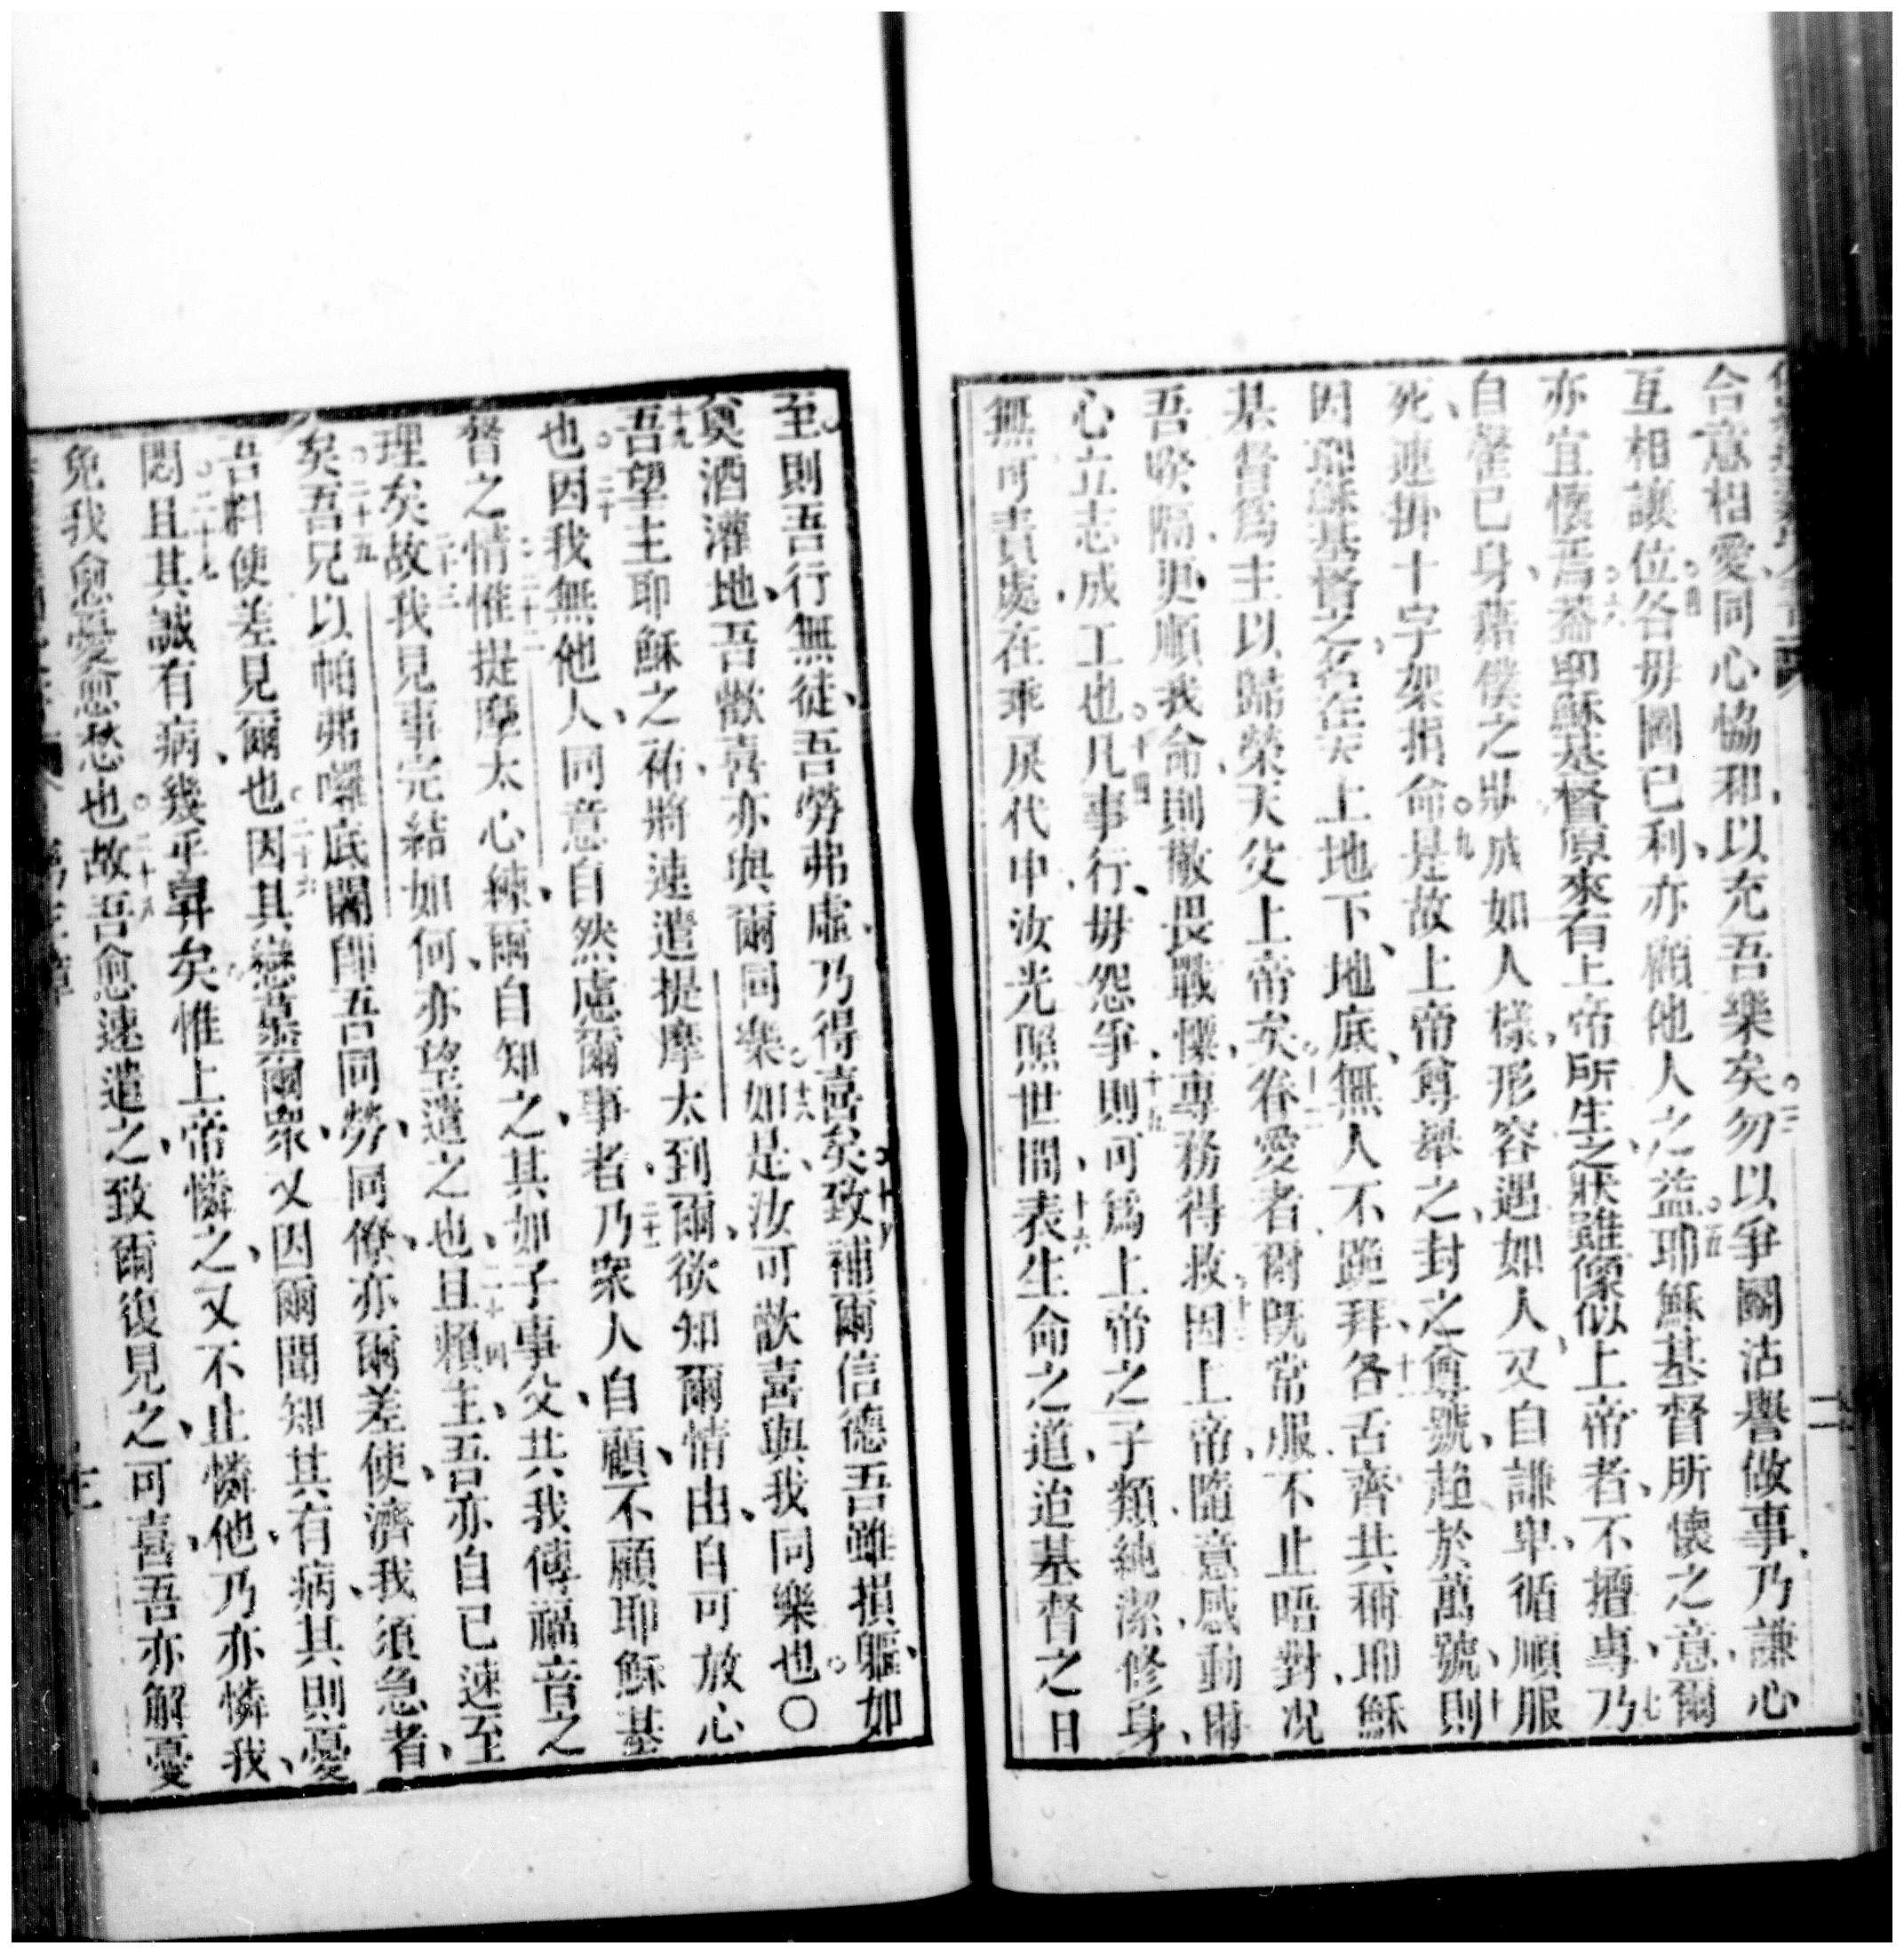 合意相愛同心恊和以充吾樂矣○三勿以爭鬬沽譽做事乃謙心
互相讓位○四各毋圖已利亦顧他人之益○五耶穌基督所懷之意爾
亦宜懷焉○六葢耶穌基督原來有上帝所生之狀雖像似上帝者不擅專○七乃
自罄已身藉僕之形成如人樣形容遇如人又自謙卑循順服
死連掛十字架捐命○九是故上帝尊舉之封之尊號超於萬號○十則
因耶穌基督之名在天上地下地底無人不跪拜○十一各舌齊共稱耶穌
基督爲主以歸榮天父上帝矣○十二眷愛者爾旣常服不止晤對况
吾睽隔更順我命則敬畏戰慄專務得救○十三因上帝隨意感動爾
心立志成工也○十四凡事行毋怨爭○十五則可爲上帝之子類純潔修身
無可責處在乖戾代中汝光照世間○十六表生命之道迨基督之日
至則吾行無徒吾勞弗虛乃得喜矣○十七致補爾信德吾雖損軀如
奠酒灌地吾歡喜亦與爾同樂○十八如是汝可歡喜與我同樂也○
十九吾望主耶穌之祐將速遣提摩太到爾欲知爾情由自可放心
也○二十因我無他人同意自然慮爾事者○二十一乃衆人自顧不顧耶穌基
督之情○二十二惟提摩太心練爾自知之其如子事父共我傳福音之
理矣○二十三故我見事完結如何亦望遣之也○二十四且賴主吾亦自已速至
矣○二十五吾兄以帕弗囉底圖卽吾同勞同僚亦爾差使濟我須急者
吾料使差見爾也○二十六因其戀慕爾衆又因爾聞知其有病其則憂
悶○二十七且其誠有病幾乎死矣惟上帝憐之又不止憐他乃亦憐我
免我愈憂愈愁也○二十八故吾愈速遣之致爾復見之可喜吾亦解憂